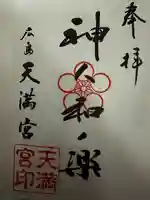 奉拝
神人和ノ楽
広島
天満宮
天満
宮印